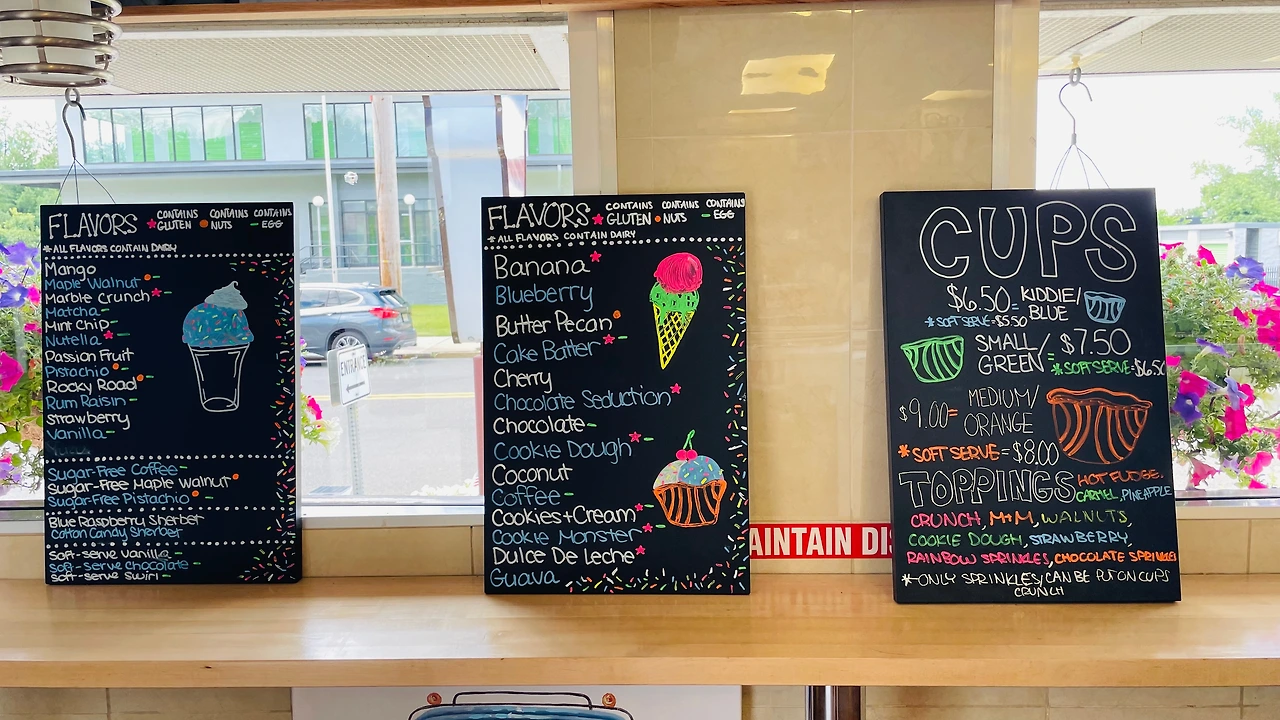 FLAVORS * CONTAINS GLUTEN • CONTAINS NUTS - CONTAINS EGG
* ALL FLAVORS CONTAIN DAIRY
Mango
Maple Walnut • -
Marble Crunch * -
Matcha -
Mint Chip -
Nutella * -
Passion Fruit
Pistachio • -
Rocky Road • -
Rum Raisin -
Strawberry
Vanilla -
Sugar-Free Coffee -
Sugar-Free Maple Walnut •
Sugar-Free Pistachio •
Blue Raspberry Sherbet
Cotton Candy Sherbet
Soft-serve Vanilla -
Soft-serve Chocolate -
Soft-serve Swirl -
FLAVORS * CONTAINS GLUTEN • CONTAINS NUTS - CONTAINS EGG
* ALL FLAVORS CONTAIN DAIRY
Banana *
Blueberry
Butter Pecan •
Cake Batter * -
Cherry
Chocolate Seduction *
Chocolate -
Cookie Dough * -
Coconut
Coffee -
Cookies+Cream * -
Cookie Monster * -
Dulce De Leche *
Guava
CUPS
$6.50 = KIDDIE/
BLUE
* SOFT SERVE = $5.50
SMALL/
GREEN
$7.50
* SOFT SERVE = $6.50
$9.00 = MEDIUM/
ORANGE
* SOFT SERVE = $8.00
TOPPINGS HOT FUDGE,
CARMEL, PINEAPPLE
CRUNCH, M+M, WALNUTS,
COOKIE DOUGH, STRAWBERRY,
RAINBOW SPRINKLES, CHOCOLATE SPRINKLES
* ONLY SPRINKLES/CAN BE PUT ON CUPS
CRUNCH
ENTRANCE
AINTAIN DIS